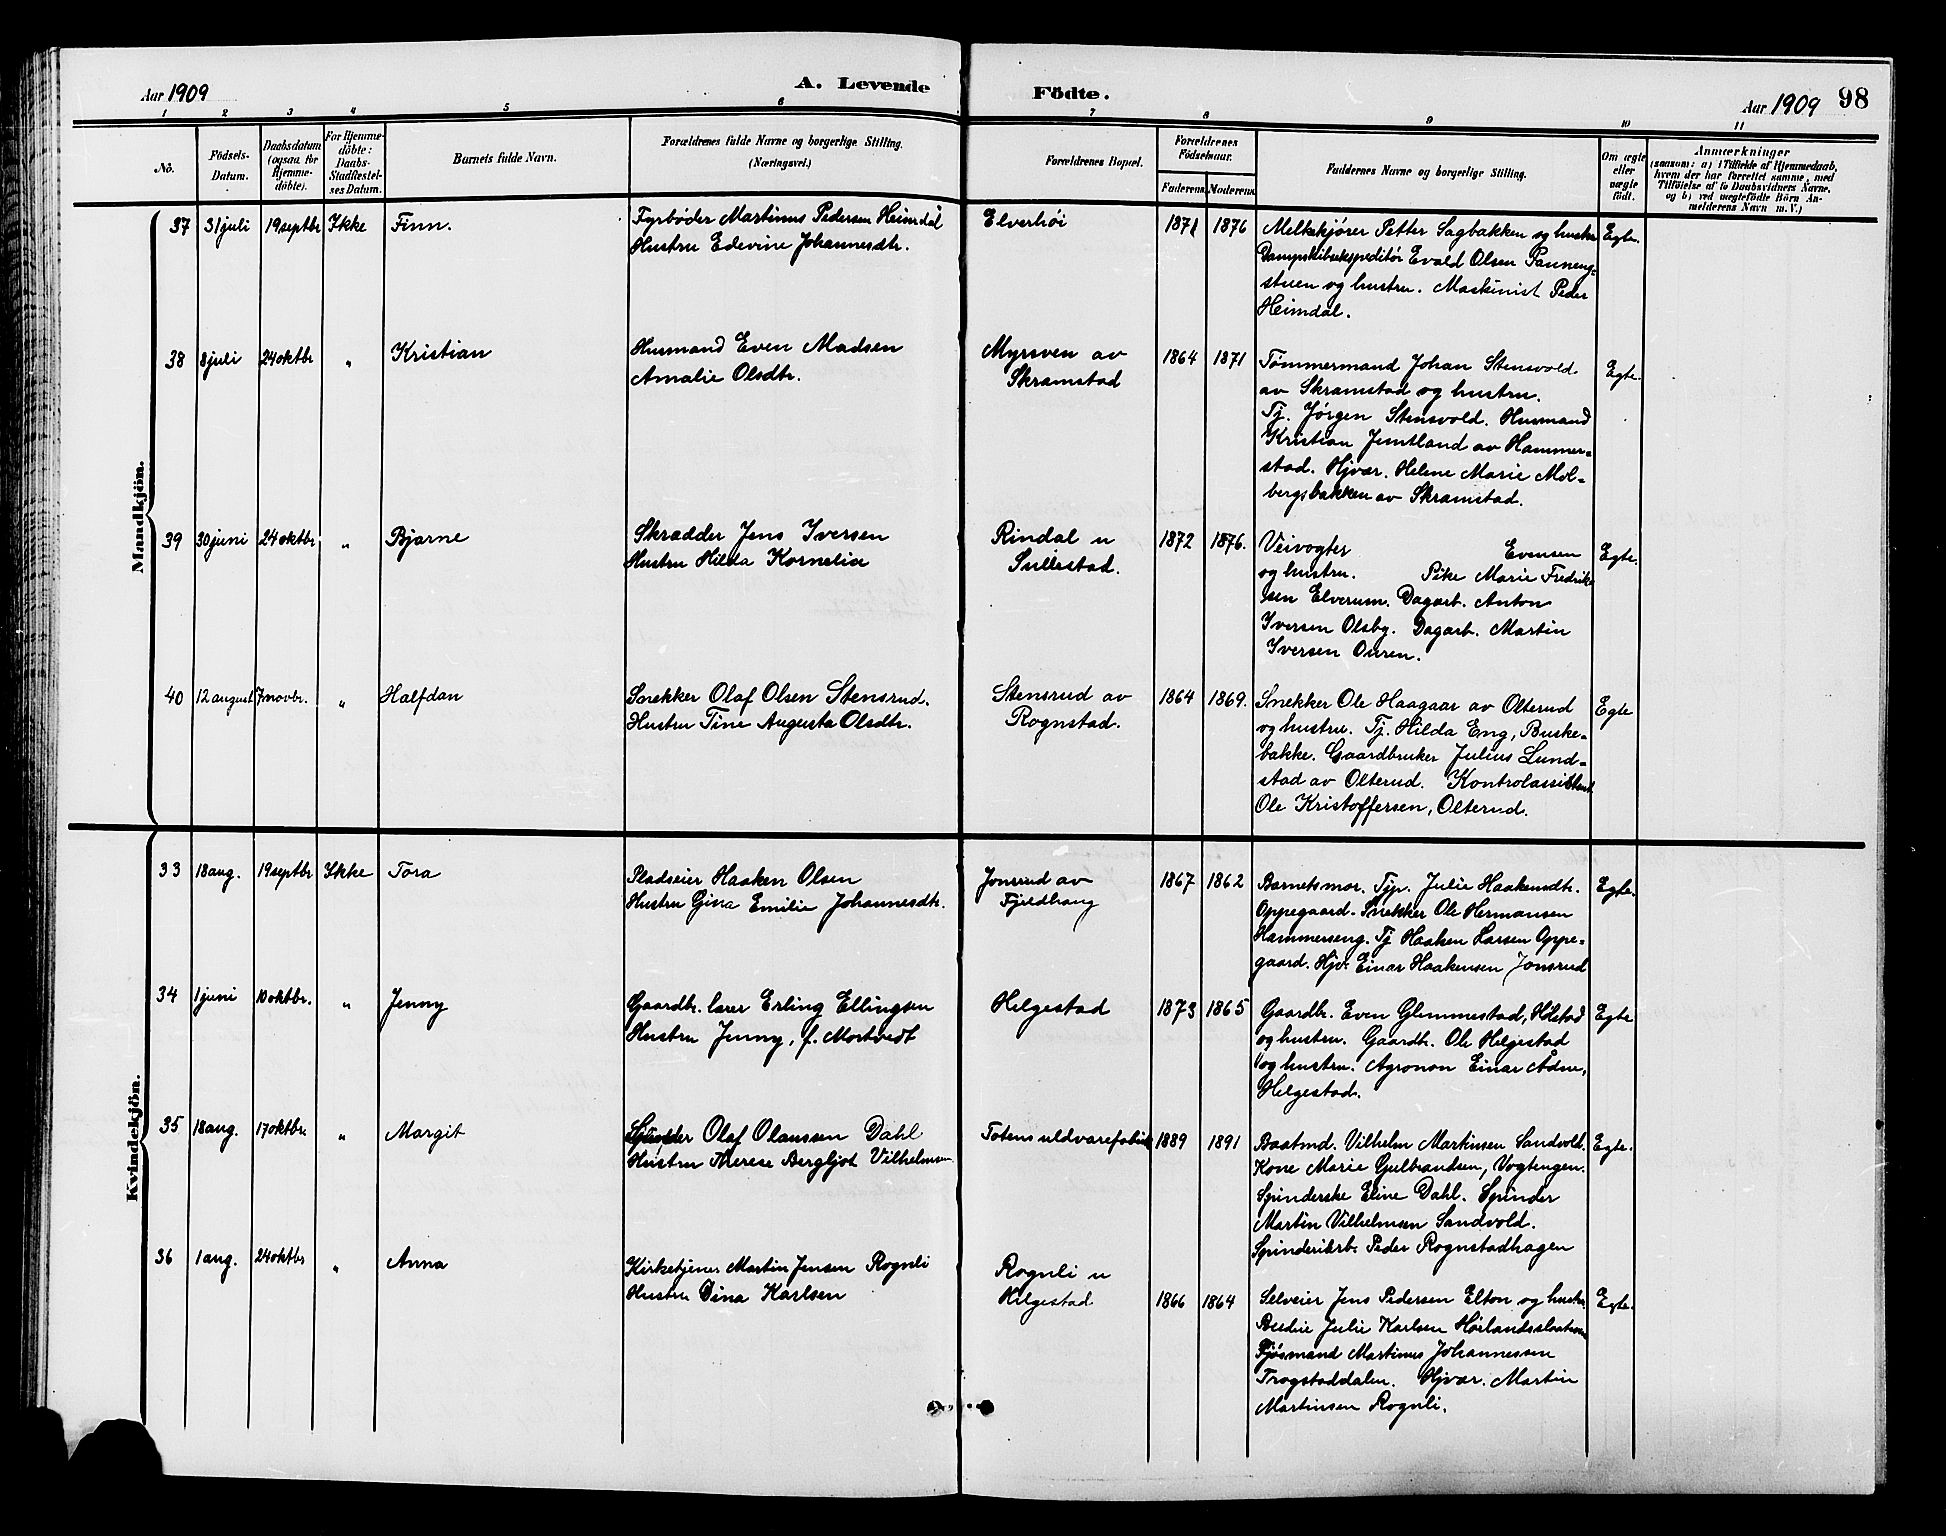 Aar 1909
A. Levende Födte.
Aar 1909
98
1 2 3 4 5 6 7 8 9 10 11
No.
Födsels-Datum.
Daabsdatum (ogsaa for Hjemmedöbte).
For Hjemmedöbte: Daabs-Stadfæstelses Datum.
Barnets fulde Navn.
Forældrenes fulde Navne og borgerlige Stilling. (Næringsvei.)
Forældrenes Bopæl.
Forældrenes Födselsaar.
Faderens. Moderens.
Faddernes Navne og borgerlige Stilling.
Om ægte eller uægte födt.
Anmærkninger
(saasom: a) i Tilfælde af Hjemmedaab,
hvem der har forrettet samme, med
Tilföielse af to Daabsvidners Navne,
og b) ved uægtefödte Börn An-
melderens Navn m. V.)
Mandkjön.
37 31 juli 19 septbr Ikke Finn.
Fyrbøder Martinus Pedersen Heimdal
Hustru Edevine Johannesdtr.
Elverhöi
1871 1876
Melkekjører Petter Sagbakken og hustru
Dampskibsekspeditør Evald Olsen Panneng-
stuen og hustru. Maskinist Peder
Heimdal.
Egte.
38 8 juli 24 oktbr „ Kristian
Husmand Even Madsen
Amalie Olsdtr.
Myrsven av
Skramstad
1864 1871
Tømmermand Johan Stensvold
av Skramstad og hustru.
Tj. Jørgen Stensvold. Husmand
Kristian Jemtland av Hammer-
stad. Hjvær. Helene Marie Mol-
bergsbakken av Skramstad.
Egte.
39 30 juni 24 oktbr „ Bjarne
Skrædder Jens Iversen
Hustru Hilda Kornelia
Rindal u
Sillestad.
1872 1876.
Veivogter Evensen
og hustru. Pike Marie Fredrik-
sen Elverum. Dagarb. Anton
Iversen Olsby. Dagarb. Martin
Iversen Ouren.
Egte.
40 12 august 7 novbr. „ Halfdan
Snekker Olaf Olsen Stensrud.
Hustru Tine Augusta Olsdtr.
Stensrud av
Rognstad.
1864 1869.
Snekker Ole Haagaar av Olterud
og hustru. Tj. Hilda Eng, Buske-
bakke. Gaardbruker Julius Lund-
stad av Olterud. Kontrolassistent
Ole Kristoffersen, Olterud.
Egte
Kvindekjön.
33 18 aug. 19 septbr Ikke Tora
Pladseier Haaken Olsen
Hustru Gina Emilie Johannesdtr.
Jonsrud av
Fjeldhaug
1867 1862
Barnetsmor. Tjp. Julie Haakensdtr.
Oppegaard. Snekker Ole Hermansen
Hammerseng. Tj Haaken Larsen Oppe-
gaard. Hjv. Einar Haakensen Jonsrud
Egte.
34 1 juni 10 oktbr. „ Jenny
Gaardbr. lærer Erling Ellingsen
Hustru Jenny, f. Mortvedt
Helgestad
1873 1865
Gaardbr. Even Glemmestad, Hølstad
og hustru. Gaardb. Ole Helgestad
og hustru. Agronon Einar Ådne,
Helgestad.
Egte
35 18 aug. 17 oktbr. „ Margit
Spinder Olaf Olaussen Dahl
Hustru Therese Bergljot Vilhelmsen
Totens uldvarefabrik
1889 1891
Baatmd. Vilhelm Martinsen Sandvold.
Kone Marie Gulbrandsen, Vogtengen.
Spinderske Eline Dahl. Spinder
Martin Vilhelmsen Sandvold.
Spinderiarb. Peder Rognstadhagen
Egte.
36 1 aug. 24 oktbr „ Anna
Kirketjener Martin Jensen Rognli
Hustru Dina Karlsen
Rognli u
Helgestad
1866 1864
Selveier Jens Pedersen Elton og hustru.
Budeie Julie Karlsen
Fjøsmand Martinus Johannessen
Trogstaddalen. Hjvær. Martin
Martinsen Rognli.
Egte.